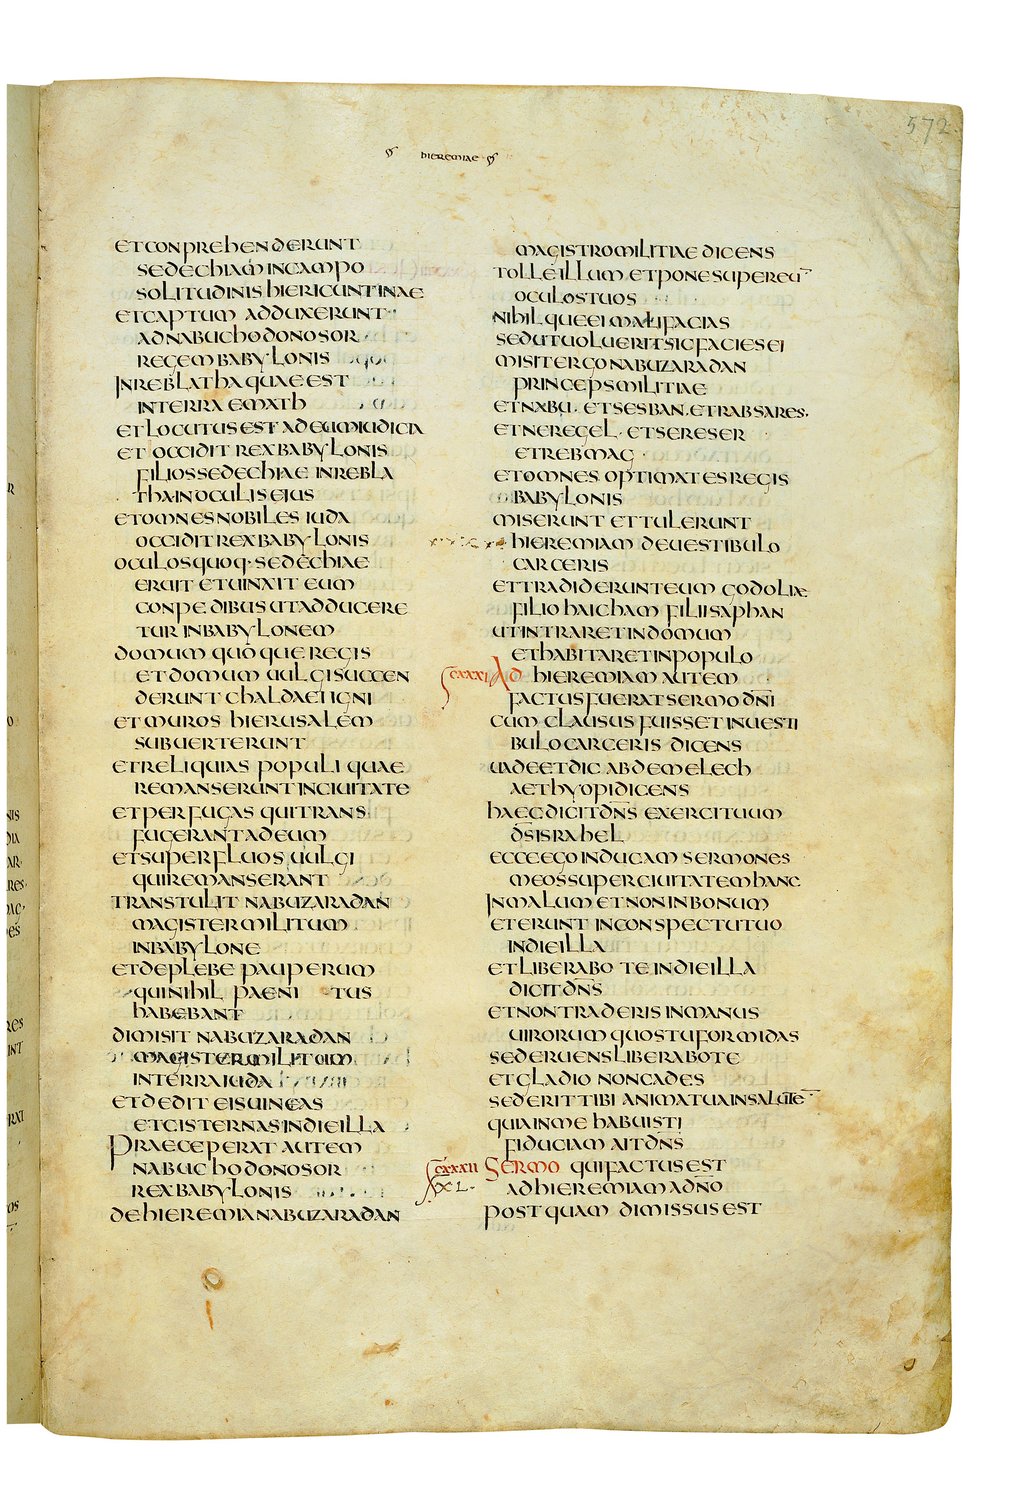 572
HIEREMIAE
ETCONPREHENDERUNT
SEDECHIAM INCAMPO
SOLITUDINIS HIERICUNTINAE
ETCAPTUM ADDUXERUNT
ADNABUCHODONOSOR
REGEM BABYLONIS
INREBLATHA QUAE EST
INTERRA EMATH
ET LOCUTUS EST AD EUM IUDICIA
ET OCCIDIT REX BABYLONIS
FILIOS SEDECHIAE INREBLA
THA IN OCULIS EIUS
ET OMNES NOBILES IUDA
OCCIDIT REX BABYLONIS
OCULOS QUOQ· SEDECHIAE
ERUIT ET UINXIT EUM
CONPEDIBUS UT ADDUCERE
TUR IN BABYLONEM
DOMUM QUOQUE REGIS
ET DOMUM UULGI SUCCEN
DERUNT CHALDAEI IGNI
ET MUROS HIERUSALEM
SUBUERTERUNT
ET RELIQUIAS POPULI QUAE
REMANSERUNT INCIUITATE
ET PERFUGAS QUI TRANS
FUGERANT AD EUM
ET SUPERFLUOS UULGI
QUI REMANSERANT
TRANSTULIT NABUZARADAN
MAGISTER MILITUM
IN BABYLONE
ET DE PLEBE PAUPERUM
QUI NIHIL PAENI TUS
HABEBANT
DIMISIT NABUZARADAN
MAGISTER MILITUM
IN TERRA IUDA
ET DEDIT EIS UINEAS
ET CISTERNAS IN DIE ILLA
PRAECEPERAT AUTEM
NABUCHODONOSOR
REX BABYLONIS
DE HIEREMIA NABUZARADAN
MAGISTRO MILITIAE DICENS
TOLLE ILLUM ET PONE SUPER EU̅
OCULOS TUOS
NIHILQUE EI MALI FACIAS
SED UT UOLUERIT SIC FACIES EI
MISIT ERGO NABUZARADAN
PRINCEPS MILITIAE
ET NABU· ET SESBAN· ET RABSARES·
ET NEREGEL· ET SERESER
ET REBMAG
ET OMNES OPTIMATES REGIS
BABYLONIS
MISERUNT ET TULERUNT
HIEREMIAM DE UESTIBULO
CARCERIS
ET TRADIDERUNT EUM GODOLIAE
FILIO HAICHAM FILII SAPHAN
UT INTRARET IN DOMUM
ET HABITARET IN POPULO
CXXXI AD HIEREMIAM AUTEM
FACTUS FUERAT SERMO DN̅I
CUM CLAUSUS FUISSET IN UESTI
BULO CARCERIS DICENS
UADE ET DIC ABDEMELECH
AETHYOPI DICENS
HAEC DICIT DN̅S EXERCITUUM
DS̅ ISRAHEL
ECCE EGO INDUCAM SERMONES
MEOS SUPER CIUITATEM HANC
IN MALUM ET NON IN BONUM
ET ERUNT IN CONSPECTU TUO
IN DIE ILLA
ET LIBERABO TE IN DIE ILLA
DICIT DN̅S
ET NON TRADERIS IN MANUS
UIRORUM QUOS TU FORMIDAS
SED ERUENS LIBERABO TE
ET GLADIO NON CADES
SED ERIT TIBI ANIMA TUA IN SALUTE̅
QUIA IN ME HABUISTI
FIDUCIAM AIT DN̅S
CXXXII SERMO QUI FACTUS EST
XL· AD HIEREMIAM A DN̅O
POSTQUAM DIMISSUS EST